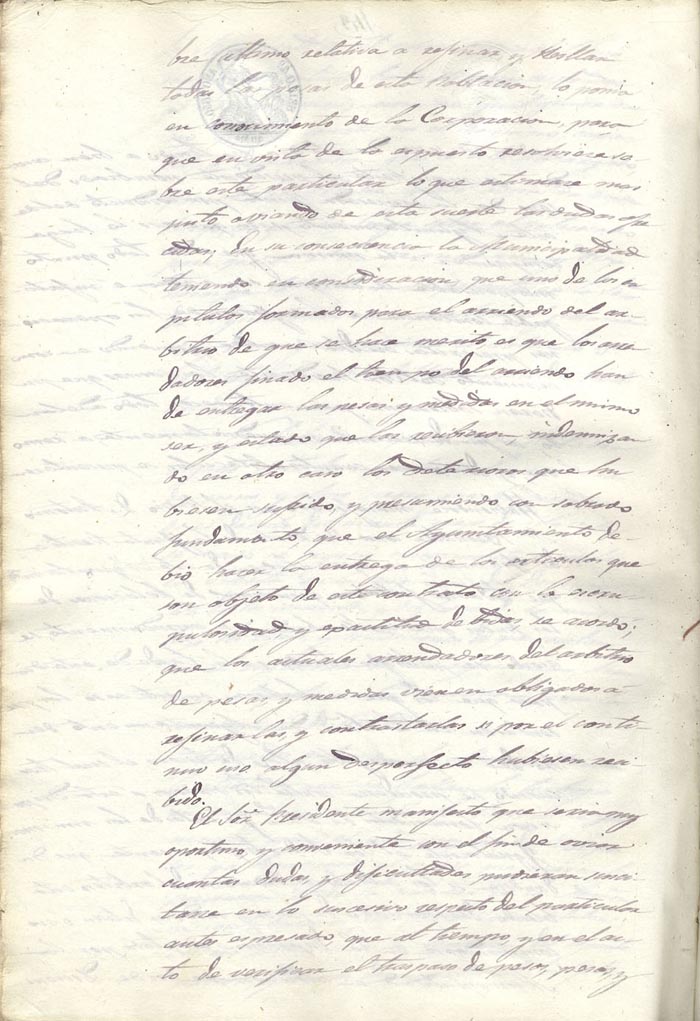 bre ultimo relativa a refinar y sellar
todas las pesas de esta Poblacion, lo ponia
en conocimiento de la Corporacion, para
que en vista de lo espuesto resolviese so
bre este particular lo que estimare mas
justo de esta suerte las dudas ofre
cidas, En su consecuencia la Municipalidad
teniendo en consideracion que uno de los ca
pitulos formados para el arriendo del ar
bitrio de que se hace merito es que los arren
dadores finado el tiempo del arriendo han
de entregar las pesas y medidas en el mismo
ser, y estado que las recibieron indemnizan
do en otro caso los deterioros que hu
biesen sufrido, y presumiendo con sobrado
fundamento, que el Ayuntamiento de
bió hacer la entrega de los articulos que
son objeto de este contrato con la escru
pulosidad y exactitud debidas, se acordó;
que los actuales arrendadores del arbitrio
de pesas, y medidas vienen obligados á
refinarlas, y contrastarlas si por el conti-
nuo uso algun desperfecto hubiesen reci
bido.
El Sor. Presidente manifestó que seria muy
oportuno, y conveniente con el fin de
cuantas dudas y dificultades pudieran susci
tarse en lo sucesivo respeto del particular
antes espresado, que al tiempo y en el ac
to de verificar el traspaso de pesos, pesas, y